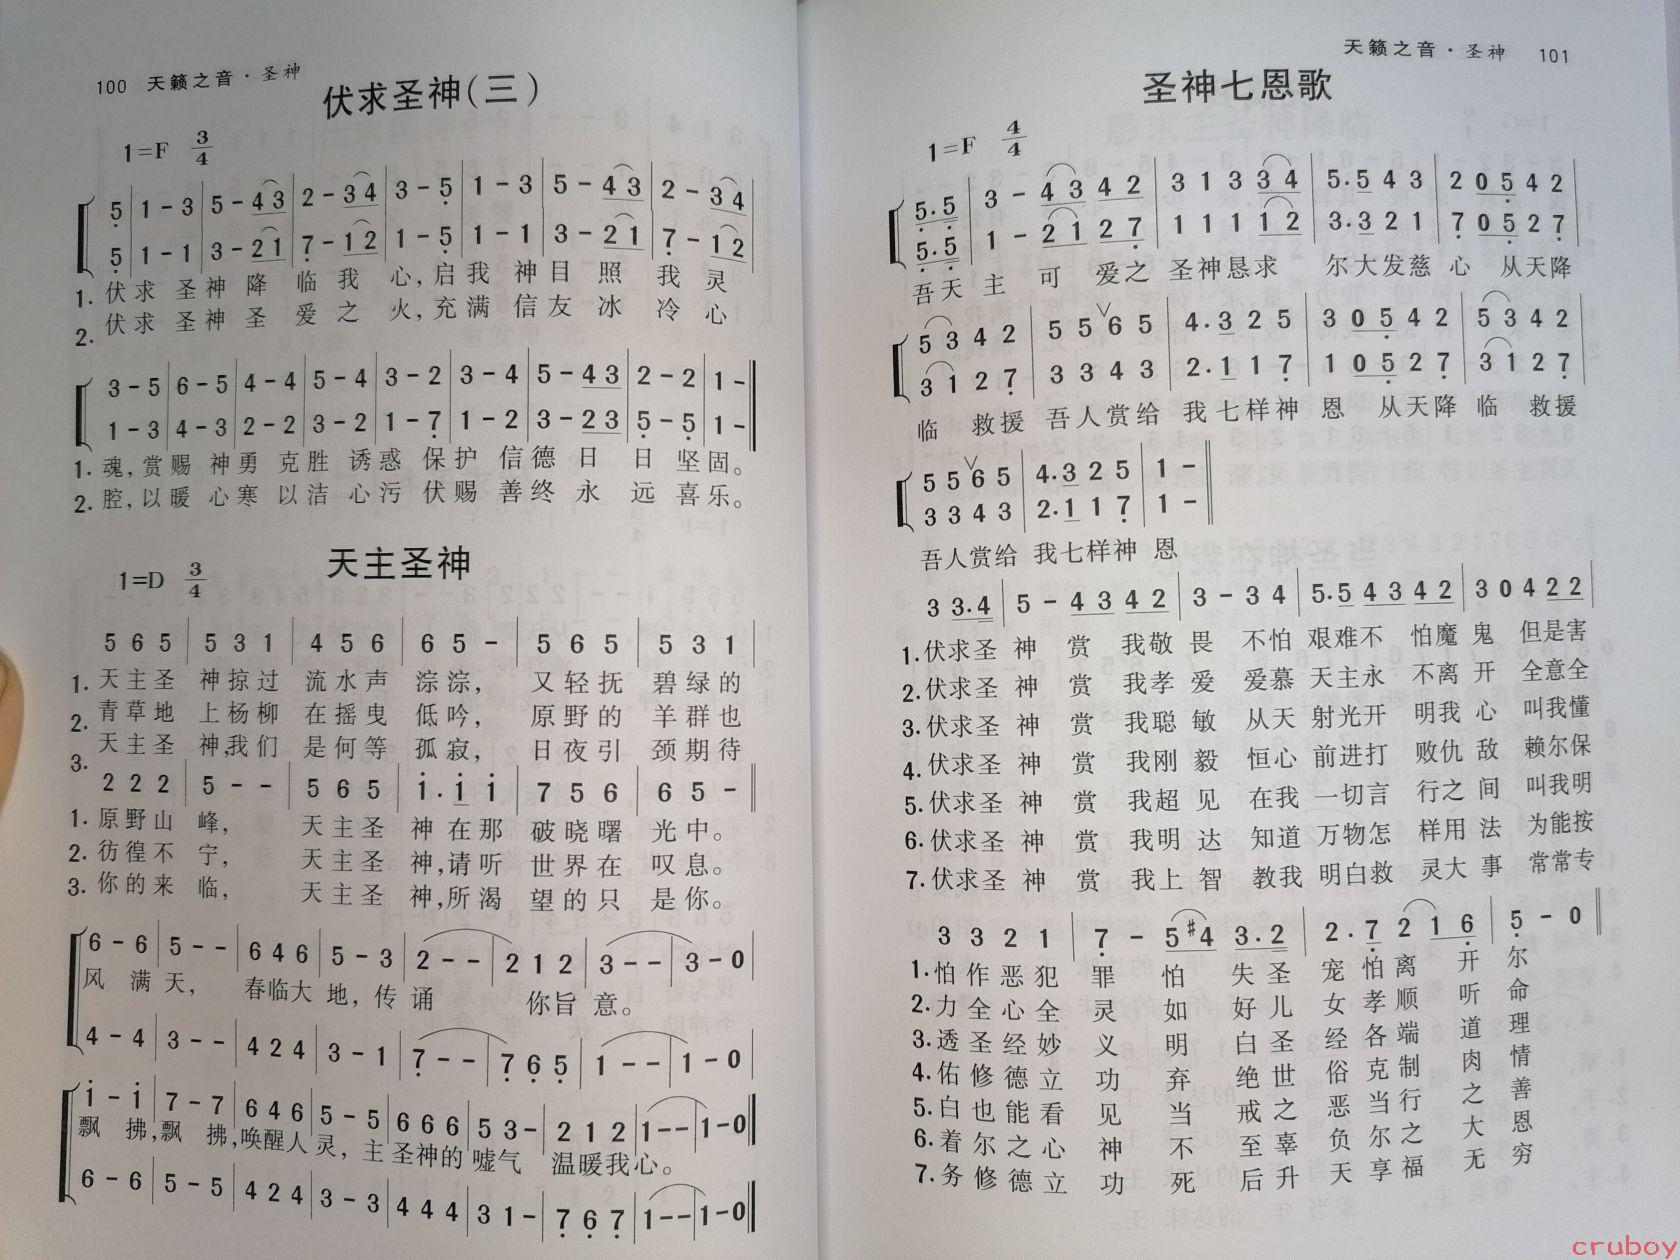 100 天籁之音·圣神
伏求圣神(三)
1=F 3/4
5 | 1 - 3 | 5 - 4 3 | 2 - 3 4 | 3 - 5 | 1 - 3 | 5 - 4 3 | 2 - 3 4
5 | 1 - 1 | 3 - 2 1 | 7 - 1 2 | 1 - 5 | 1 - 1 | 3 - 2 1 | 7 - 1 2
1. 伏求 圣神 降 临 我 心,启我 神目 照 我 灵
2. 伏求 圣神 圣 爱 之 火,充满 信友 冰 冷 心
3 - 5 | 6 - 5 | 4 - 4 | 5 - 4 | 3 - 2 | 3 - 4 | 5 - 4 3 | 2 - 2 | 1 -
1 - 3 | 4 - 3 | 2 - 2 | 3 - 2 | 1 - 7 | 1 - 2 | 3 - 2 3 | 5 - 5 | 1 -
1. 魂,赏赐 神勇 克胜 诱惑 保护 信德 日 日 坚固。
2. 腔,以暖 心寒 以洁 心污 伏赐 善终 永 远 喜乐。
天主圣神
1=D 3/4
5 6 5 | 5 3 1 | 4 5 6 | 6 5 - | 5 6 5 | 5 3 1
1. 天主圣 神掠过 流水声 淙淙, 又轻抚 碧绿的
2. 青草地 上杨柳 在摇曳 低吟, 原野的 羊群也
3. 天主圣 神,我们 是何等 孤寂, 日夜引 颈期待
2 2 2 | 5 - - | 5 6 5 | i . i i | 7 5 6 | 6 5 -
1. 原野山 峰, 天主圣 神在那 破晓曙 光中。
2. 彷徨不 宁, 天主圣 神,请听 世界在 叹息。
3. 你的来 临, 天主圣 神,所渴 望的只 是你。
6 - 6 | 5 - - | 6 4 6 | 5 - 3 | 2 - - | 2 1 2 | 3 - - | 3 - 0
风 满天, 春临大 地,传诵 你旨 意。
4 - 4 | 3 - - | 4 2 4 | 3 - 1 | 7 - - | 7 6 5 | 1 - - | 1 - 0
i - i | 7 - 7 | 6 4 6 | 5 - 5 | 6 6 6 | 5 3 - | 2 1 2 | 1 - - | 1 - 0
飘 拂,飘 拂,唤醒人灵, 主圣神的嘘气 温暖我心。
6 - 6 | 5 - 5 | 4 2 4 | 3 - 3 | 4 4 4 | 3 1 - | 7 6 7 | 1 - - | 1 - 0
天籁之音·圣神 101
圣神七恩歌
1=F 4/4
5. 5 | 3 - 4 3 4 2 | 3 1 3 3 4 | 5. 5 4 3 | 2 0 5 4 2
5. 5 | 1 - 2 1 2 7 | 1 1 1 1 2 | 3. 3 2 1 | 7 0 5 2 7
吾天 主 可 爱之 圣神恳求 尔大发慈 心 从天降
5 3 4 2 | 5 5 ∨ 6 5 | 4. 3 2 5 | 3 0 5 4 2 | 5 3 4 2
3 1 2 7 | 3 3 4 3 | 2. 1 1 7 | 1 0 5 2 7 | 3 1 2 7
临 救援 吾人赏给 我七样神 恩 从天降 临 救援
5 5 ∨ 6 5 | 4. 3 2 5 | 1 -
3 3 4 3 | 2. 1 1 7 | 1 -
吾人赏给 我七样神 恩
3 3. 4 | 5 - 4 3 4 2 | 3 - 3 4 | 5. 5 4 3 4 2 | 3 0 4 2 2
1. 伏求圣 神 赏 我敬 畏 不怕 艰难不 怕魔 鬼 但是害
2. 伏求圣 神 赏 我孝 爱 爱慕 天主永 不离 开 全意全
3. 伏求圣 神 赏 我聪 敏 从天 射光开 明我 心 叫我懂
4. 伏求圣 神 赏 我刚 毅 恒心 前进打 败仇 敌 赖尔保
5. 伏求圣 神 赏 我超 见 在我 一切言 行之 间 叫我明
6. 伏求圣 神 赏 我明 达 知道 万物怎 样用 法 为能按
7. 伏求圣 神 赏 我上 智 教我 明白救 灵大 事 常常专
3 3 2 1 | 7 - 5 #4 3. 2 | 2. 7 2 1 6 | 5 - 0
1. 怕作恶犯 罪 怕 失圣 宠怕离 开 尔
2. 力全心全 灵 如 好儿 女孝顺 听 命
3. 透圣经妙 义 明 白圣 经各端 道 理
4. 佑修德立 功 弃 绝世 俗克制 肉 情
5. 白也能看 见 当 戒之 恶当行 之 善
6. 着尔之心 神 不 至辜 负尔之 大 恩
7. 务修德立 功 死 后升 天享福 无 穷
cruboy